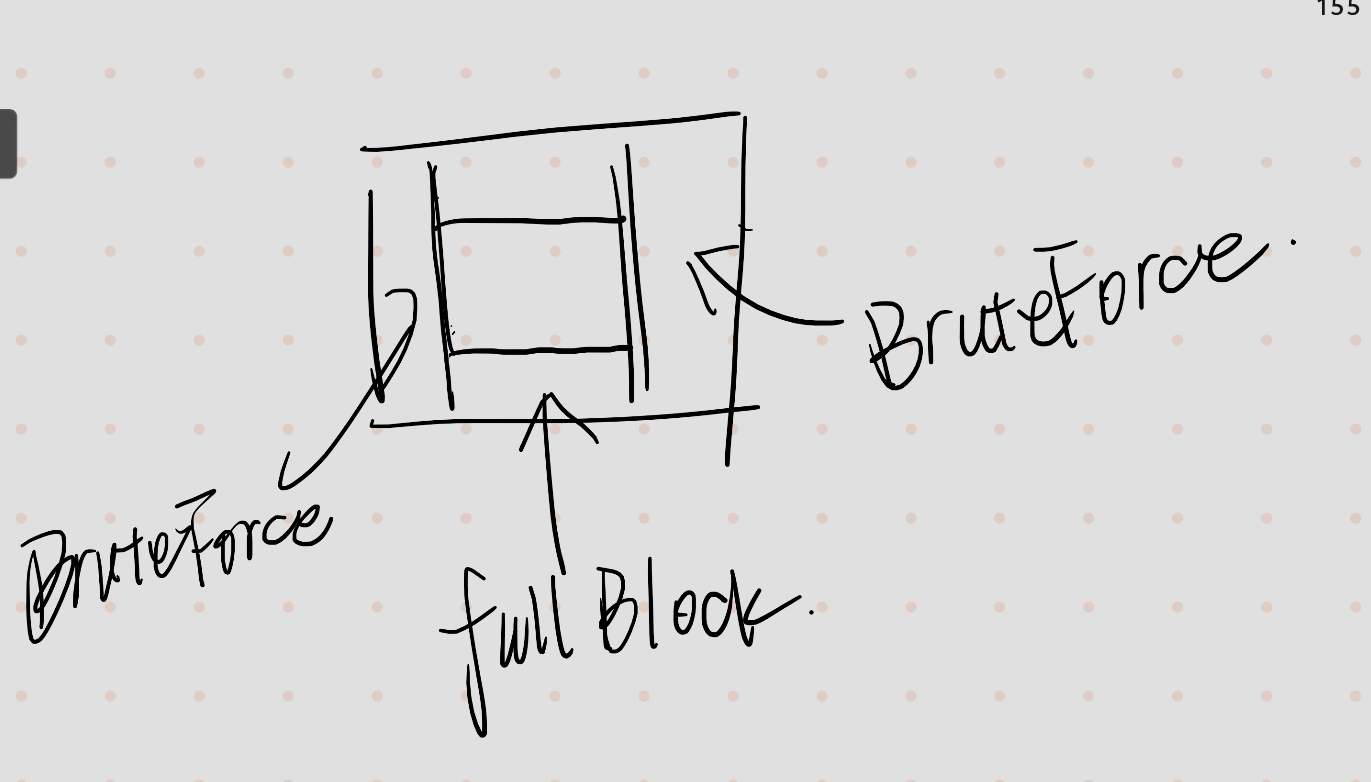 155
BruteForce.
BruteForce
full Block.